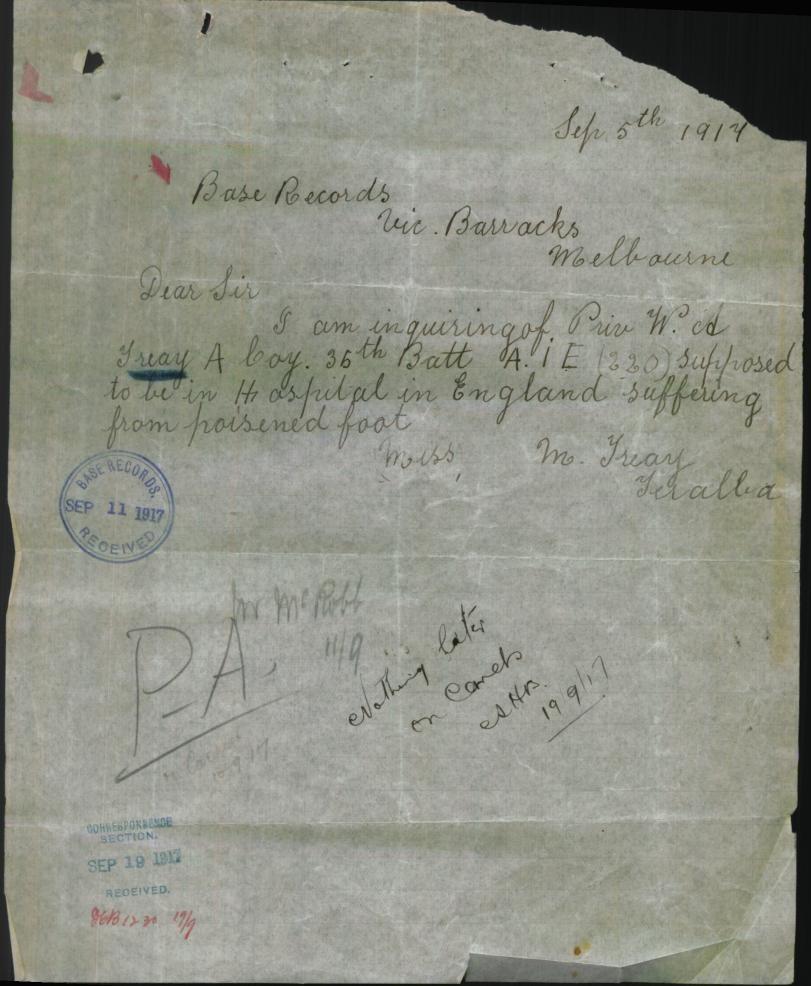 Sep 5th 1917
Base Records
Vic. Barracks
Melbourne
Dear Sir
I am inquiring of Priv W. A
Treay A Coy. 36th Batt A. I E (220) supposed
to be in Hospital in England suffering
from poisened foot
Miss, M. Treay
Teralba
BASE RECORDS.
SEP 11 1917
RECEIVED
Mr McRobb
11/9
P.A.
Nothing later
on Cards
19/9/17
CORRESPONDENCE
SECTION.
SEP 19 1917
RECEIVED.
19/9